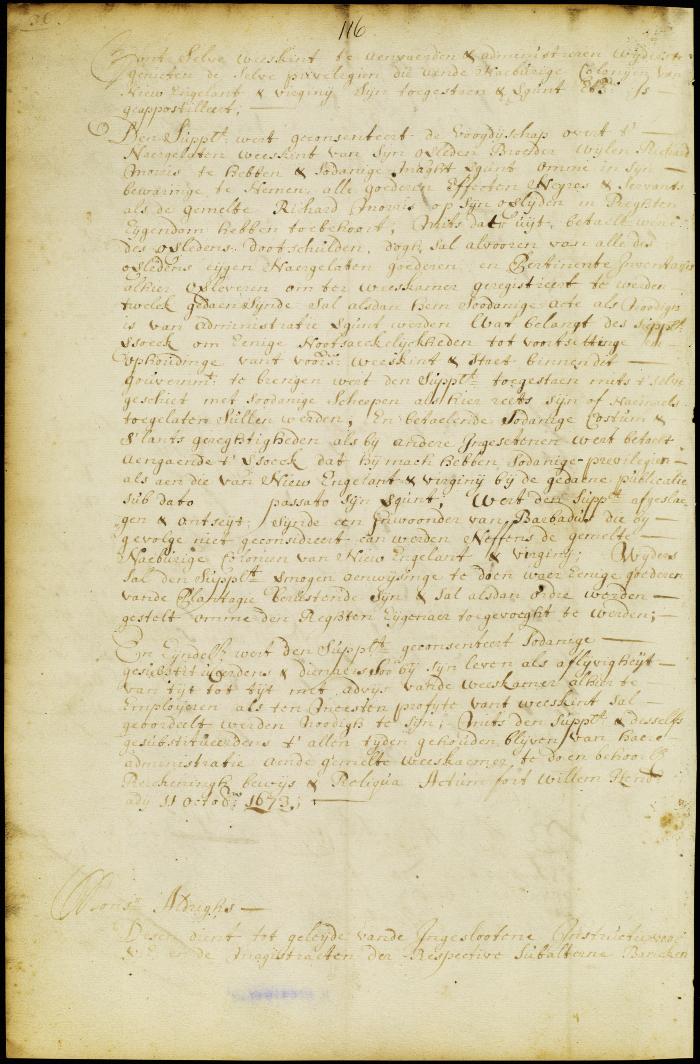 116
Zonts Selve weeskint te aenvaerden & administreren wijders te
genieten de selve previlegien die aende Naebúrige Colonijen van
Niew Engelant & virginij Sijn toegestaen & Sgúnt
geappostilleert; —
Den Súpplt wert geconsenteert de voogdijschap over t' —
Naergelaten weeskint van Sijn overleden Broeder Wijlen Richard
Morris te Hebben & Sodanige Maght Sgunt omme in Sijn —
bewaringe te Nemen, alle goederen Effecten Negros & Servants
als de gemelte Richard Morris op Sijn overlijden in Reghten
Eijgendom hebben toebehoort; Mits dat hier uijt, betaelt werde
des overledens dootschúlden, dogh sal alvooren van alle des
overledens eijgen Naergelaten goederen, een Pertinente Inventaris
alhier overleveren om ter weeskamer geregistreert te werden
twelck gedaen Sijnde Sal alsdan hem Soodanige acte als Noodigh
is van Administratie Sgúnt werden Wat belangt des Súpplts
versoeck om Eenige Nootsaeckelijckheden tot voortsettinge en
ophoudinge vant voorsz weeskint & Staet binnen dit —
gouvernmt te brengen wert den Súpplt toegestaen mits t' selve
geschiet met Soodanige Scheepen als hier reets sijn of Naemaels
toegelaten Sullen werden, En betaelende Sodanige Costúm &
S'lants gereghtigheden als bij andere Ingesetenen wert betaelt
aengaende t' versoeck dat hij mach hebben Sodanige previlegien —
als aen die van Niew Engelant & virginij bij de gedaene publicatie
sub dato passato Sijn Sgúnt; Wert den Súpplt afgeslae
gen & ontseijt, Sijnde een Inwoonder van Barbados die bij
gevolge niet geconsidreert can werden Neffens de gemelte —
Naebúrige Colonien van Niew Engelant & virginij; Wijders
Sal den Súpplt vermogen aenwijsinge te doen waer Eenige goederen
vande Plantagie Berústende Sijn & Sal alsdan ordre werden —
gestelt omme den Reghten Eijgenaer toegevoeght te werden; —
En Eijndel. wert den Súpplt geconsenteert Sodanige —
gesubstitúeerdens & dienaers Soo bij Sijn leven als aflijvigheijt —
van tijt tot tijt met advijs vande weeskamer alhier te
Employeren als ten Meesten profijte vant weeskint Sal —
geoordeelt werden Noodigh te Sijn; Mits den Súpplt & desselfs
gesubstitueerdens t' allen tijden gehouden blijven van haere
administratie aende gemelte weeskaemer te doen behoorl.
Reeckeningh bewijs & Reliqua Actum fort Willem Hendr
adij 11 octobr 1673; —
Monsr Aldrighs —
Desen dient tot geleijde vande Ingeslootene Instructie voor
UE en de Magistraeten der Respective Subalterne Bancken